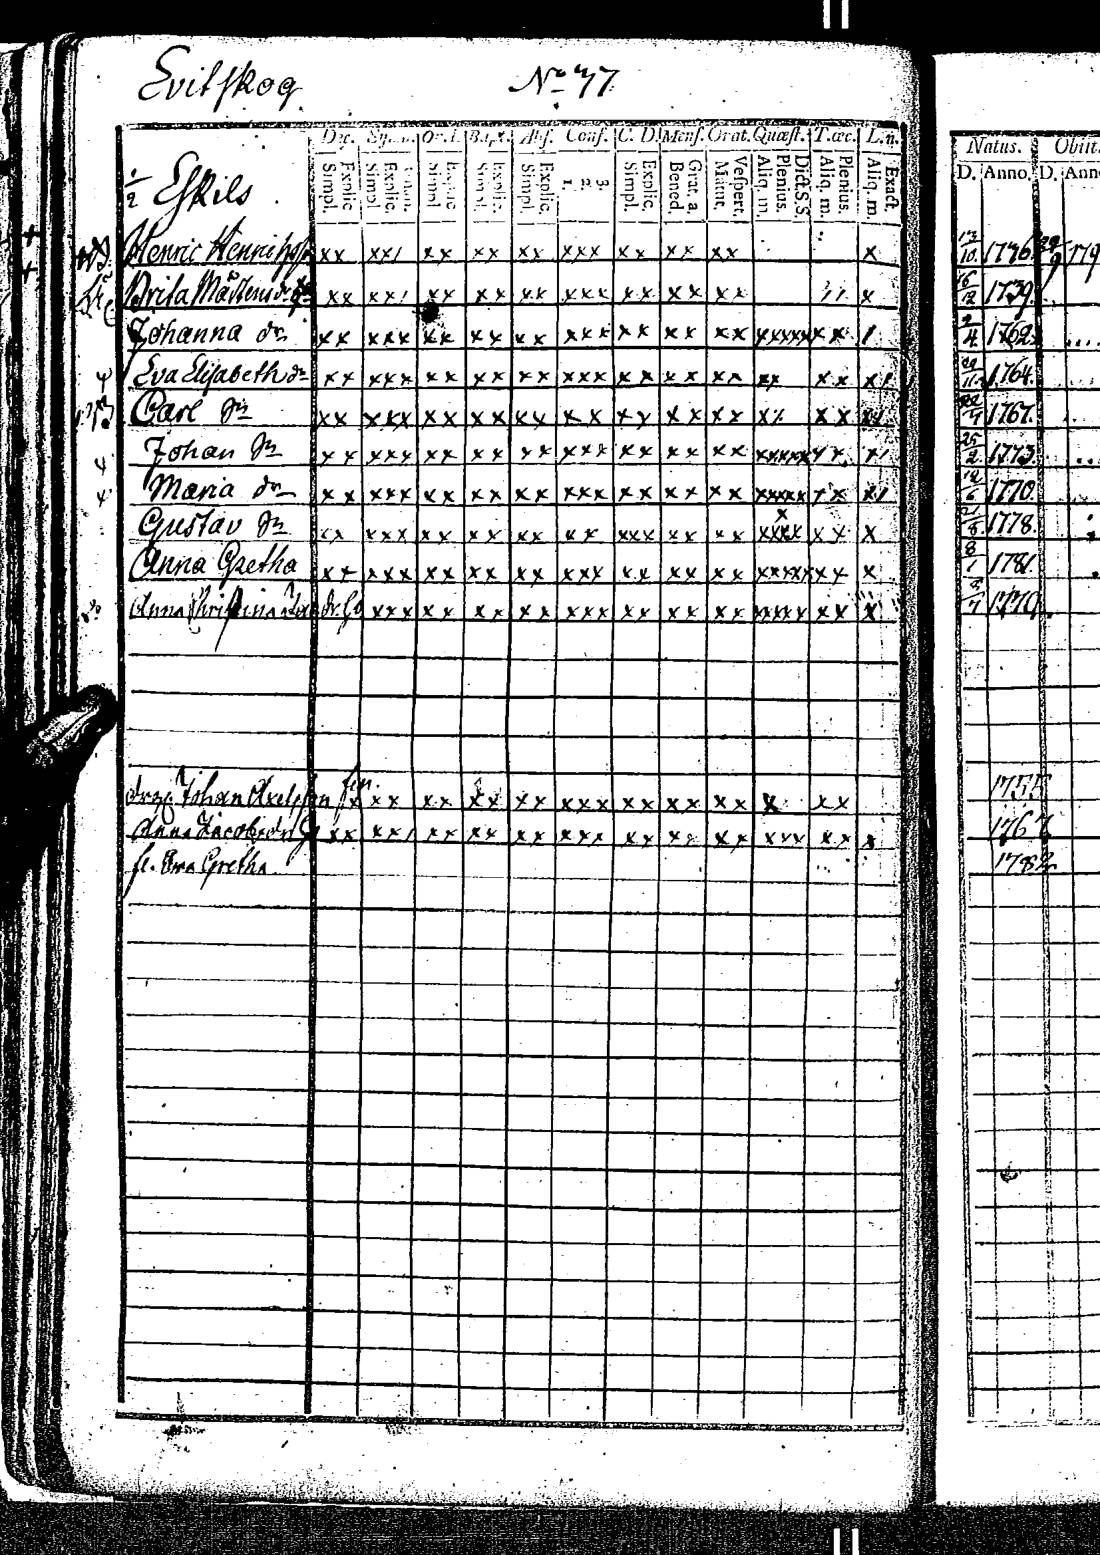 Evitskog No 77
Dec. Or. D. Bapt. Abs. Conf. C. D. Mens. Orat. Quæst. T. œc. Natus. Obiit.
Simpl. Explic. Simpl. Explic. Simpl. Explic. Simpl. Explic. Simpl. Explic. 1. 2. 3. Simpl. Explic. Bened. Grat. a. Matut. Vespert. Aliq. m. Plenius. Dict. S.S. Aliq. m. Plenius. Aliq. m. Exact. D. Anno. D. Ann
1/2 Eskils
Henric xx xx/ xx xx xx xxx xx xx xx x 13/10. 1736. 29/9
Brita Mårtens dr xx xx/ xx xx xx xxx xx xx xx x 1739.
Johanna dr xx xxx xx xx xx xxx xx xx xx xxxxx xx / 1762.
Eva Elisabeth dr xx xxx xx xx xx xxx xx xx xx xx xx x/ 1764.
Carl Sn xx xxx xx xx xx xx xx xx xx xx 1767.
Johan Sn xx xxx xx xx xx xxx xx xx xx xxxxx xx x/ 25/2 1773.
Maria dr xx xxx xx xx xx xxx xx xx xx xxxxx xx x/ 1770.
Gustav Sn xx xxx xx xx xx xx xxx xx xx xxxx xx x 1778.
Anna Gretha xx xxx xx xx xx xxx xx xx xx xxxxx xx x 8/1 1781.
Anna Christina xxx xx xx xx xxx xx xx xx xxxx xx x 1770.
Johan Axelsson xx xx xx xx xxx xx xx xx x xx 1755
Anna Jacobs dr xx xx/ xx xx xx xxx xx xx xx xxx xx x
fl. Eva Gretha 1782